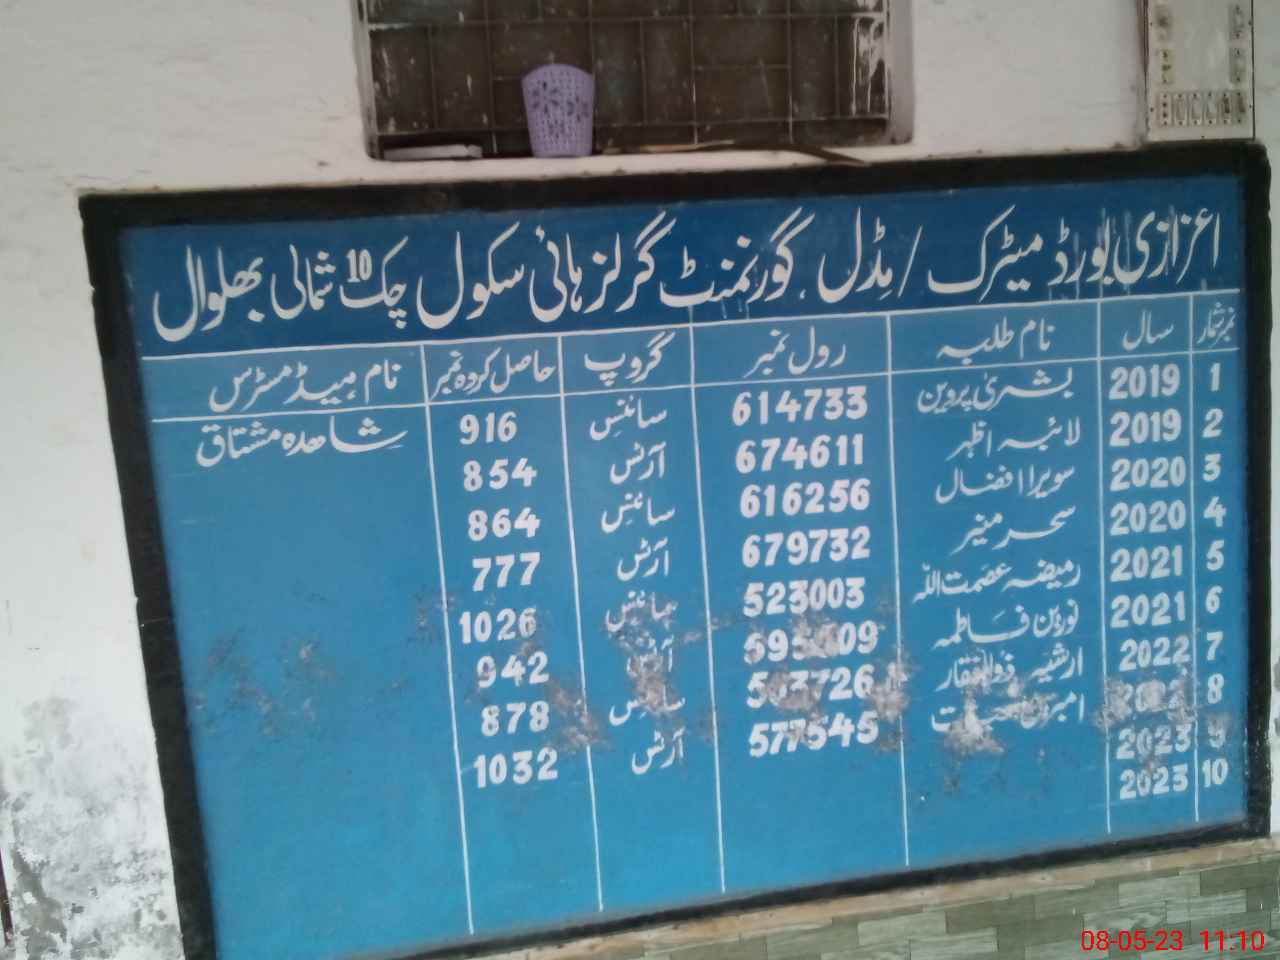 اعزازی بورڈ میٹرک / مڈل گورنمنٹ گرلز ہائی سکول چک 10 شمالی بھلوال
نمبر شمار سال نام طلبہ رول نمبر گروپ حاصل کردہ نمبر نام ہیڈ مسٹرس
1 2019 بشریٰ پروین 614733 سائنس 916 شاہدہ مشتاق
2 2019 لائبہ اظہر 674611 آرٹس 854
3 2020 سویرا افضال 616256 سائنس 864
4 2020 سحر منیر 679732 آرٹس 777
5 2021 رمیضہ عصمت اللہ 523003 سائنس 1026
6 2021 نورین فاطمہ آرٹس 942
7 2022 ارشیہ ذوالفقار سائنس 878
8 2022 577545 آرٹس 1032
9 2023
10 2023
08-05-23 11:10